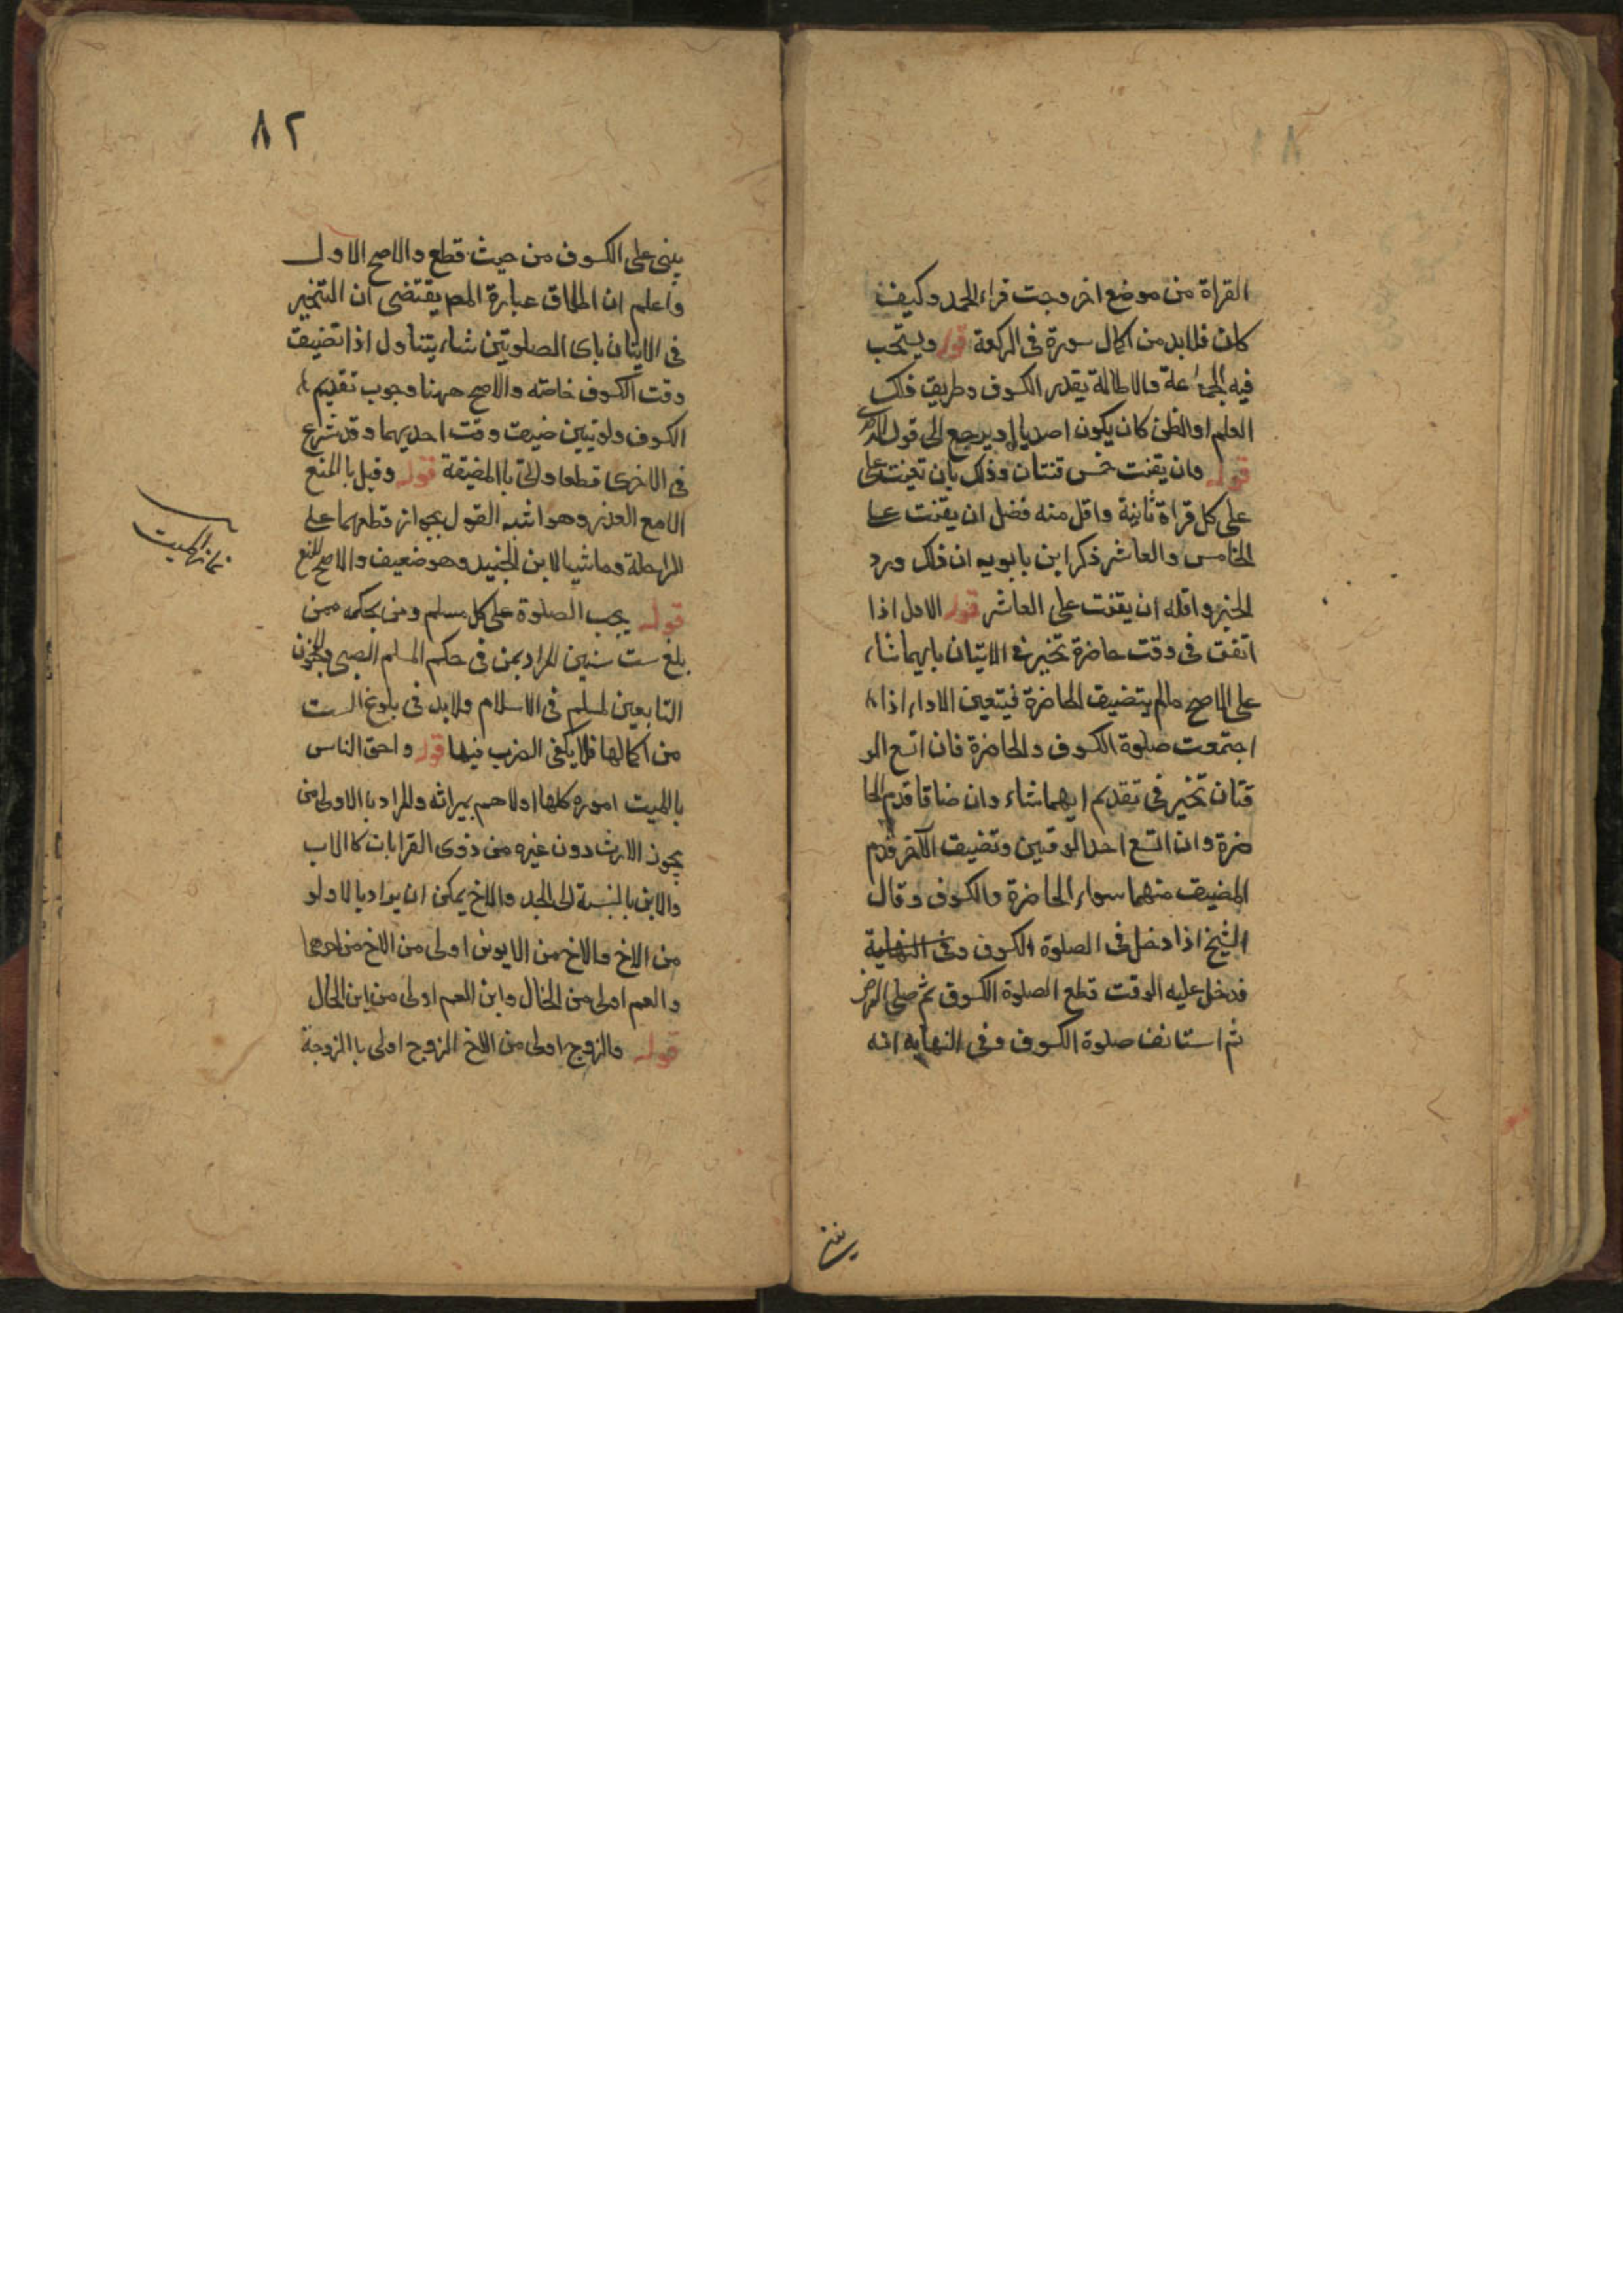 القراة من موضع اخر وجبت قراء الحمد وكيف
كان فلابد من اكمال سورة فى الركعة قوله ويستحب
فيه الجماعة والاطالة بقدر الكسوف وطريق ذلك
العلم او الظن كان يكون اصديا او يرجع الى قول
قوله وان يقنت خمس قنتات وذلك بان تقنت على
على كل قراة ثانية واقل منه فضل ان يقنت على
الخامس والعاشر ذكر ابن بابويه ان ذلك ورد
الخبر واقله ان يقنت على العاشر قوله الاول اذا
اتفق فى وقت حاضرة تخير فى الاتيان بايهما شاء
على الاصح مالم يتضيق الحاضرة فيتعين الاداء اذا
اجتمعت صلوة الكسوف والحاضرة فان اتسع الو
قتان تخير فى تقديم ايهما شاء وان ضاقا قدم الحا
ضرة وان اتسع احد الوقتين وتضيق الاخر قدم
المضيق منهما سواء الحاضرة والكسوف وقال
الشيخ اذا دخل فى الصلوة الكسوف وفى النهاية
فدخل عليه الوقت قطع الصلوة الكسوف ثم صلى الفرض
ثم استانف صلوة الكسوف وفى النهاية انه
يبنى
٨٢
يبنى على الكسوف من حيث قطع والاصح الاول
واعلم ان اطلاق عبارة المص يقتضى ان التخير
فى الاتيان باى الصلوتين شاء يتناول اذا تضيق
وقت الكسوف خاصة والاصح ههنا وجوب تقديم
الكسوف ولو تبين ضيق وقت احديهما وقد شرع
فى الاخرى قطعها واتى با المضيقة قوله وقيل با المنع
الا مع العذر وهو اشبه القول بجواز قطعهما على
الراحلة وماشيا لابن الجنيد وهو ضعيف والاصح المنع
قوله يجب الصلوة على كل مسلم ومن بحكمه ممن
بلغ ست سنين المراد بمن فى حكم المسلم الصبى والمجنون
التابعين لمسلم فى الاسلام ولابد فى بلوغ الست
من اكمالها فلا يكفى الضرب فيها قوله واحق الناس
با الميت اموره كلها اولاهم بميراثه والمراد با الاولى من
يحوز الارث دون غيره من ذوى القرابات كا الاب
والابن بالنسبة الى الجد والاخ يمكن ان يراد بالاولو
من الاخ والاخ من الابوين اولى من الاخ من احدهما
والعم اولى من الخال وابن العم اولى من ابن الخال
قوله والزوج اولى من الاخ الزوج اولى با الزوجة
نماز الميت